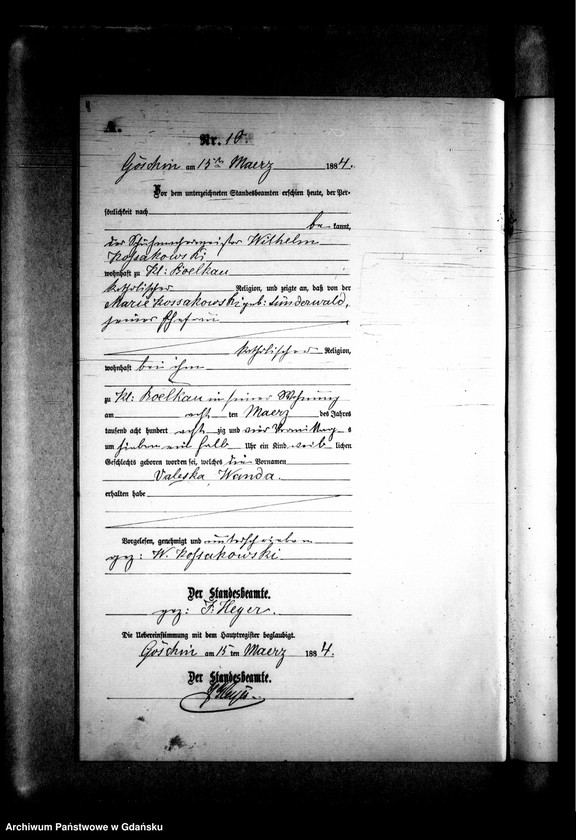 A.
Nr. 10.
Göschin am 15ten Maerz 1884.
Vor dem unterzeichneten Standesbeamten erschien heute, der Per-
sönlichkeit nach
be kannt,
der Schuhmachermeister Wilhelm
Kossakowski
wohnhaft zu Kl: Boelkau
katholischer Religion, und zeigte an, daß von der
Marie Kossakowski geb: Sünderwald,
seiner Ehefrau
katholischer Religion,
wohnhaft bei ihm
zu Kl: Boelkau in seiner Wohnung
am acht ten Maerz des Jahres
tausend acht hundert acht zig und vier Vormittag s
um sieben ein halb Uhr ein Kind weib lichen
Geschlechts geboren worden sei, welches die Vornamen
Valeska Wanda.
erhalten habe
Vorgelesen, genehmigt und unterschrieben
gez: W. Kossakowski
Der Standesbeamte.
gez: F. Heyer.
Die Uebereinstimmung mit dem Hauptregister beglaubigt.
Göschin am 15 ten Maerz 1884.
Der Standesbeamte.
F. Heyer
Archiwum Państwowe w Gdańsku